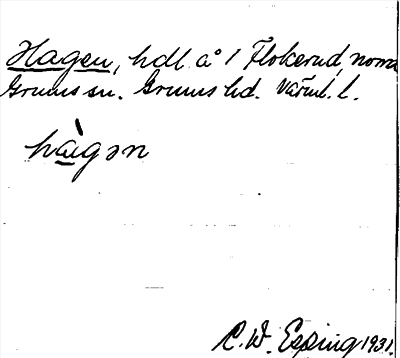 Hagen, hdl å 1 Flokerud, norra
Grums sn. Grums hd. Värml. l.
hàgən
C. W. Esping 1931.